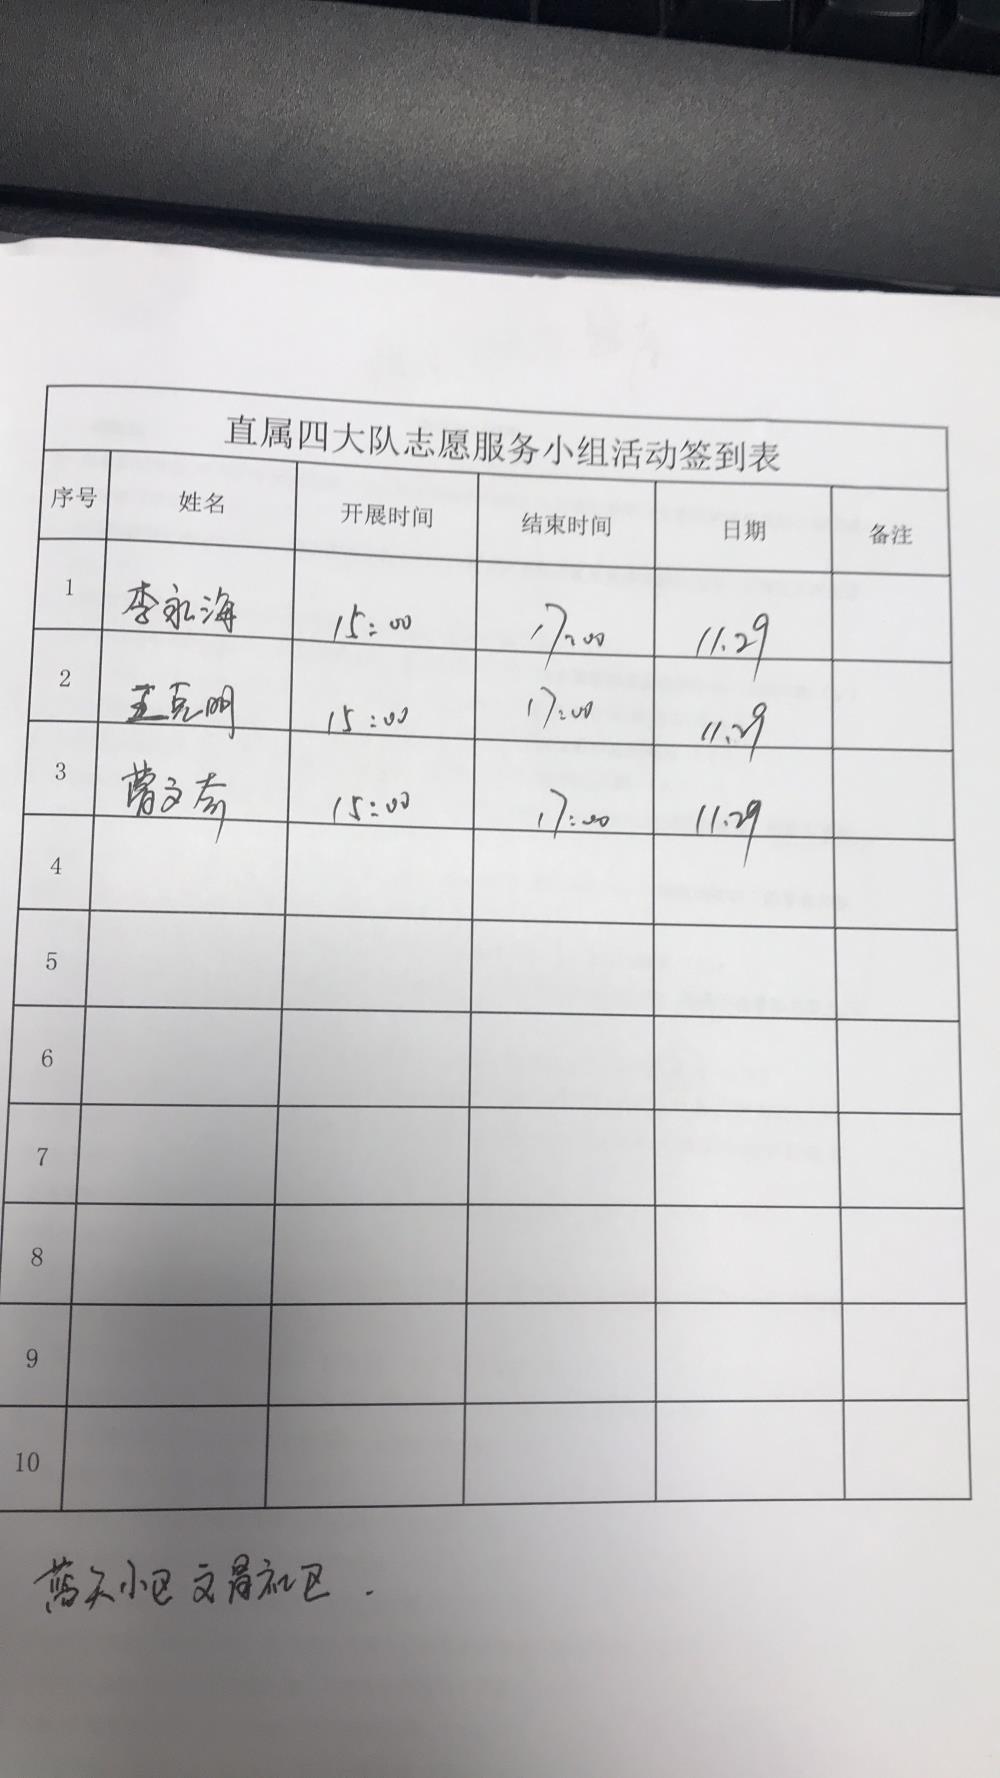 直属四大队志愿服务小组活动签到表
序号 姓名 开展时间 结束时间 日期 备注
1 李永海 15:00 17:00 11.29
2 王克明 15:00 17:00 11.29
3 曹文 15:00 17:00 11.29
4
5
6
7
8
9
10
蓝天小区文昌社区.